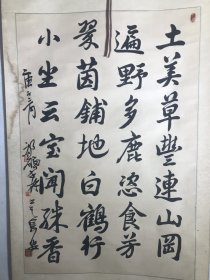 土美草豐連山岡
遍野多鹿恣食芳
翠茵鋪地白鶴行
小坐云宝聞殊香